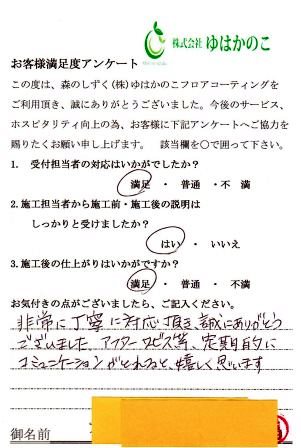 株式会社 ゆはかのこ
お客様満足度アンケート
この度は、森のしずく(株)ゆはかのこフロアコーティングを
ご利用頂き、誠にありがとうございました。今後のサービス、
ホスピタリティ向上の為、お客様に下記アンケートへご協力を
賜りたくお願い申し上げます。 該当欄を○で囲って下さい。
1. 受付担当者の対応はいかがでしたか?
満足 ・ 普通 ・ 不 満
2.施工担当者から施工前・施工後の説明は
しっかりと受けましたか?
はい ・ いいえ
3.施工後の仕上がりはいかがですか?
満足 ・ 普通 ・ 不 満
お気付きの点がございましたら、ご記入ください。
非常に丁寧に対応頂き、誠にありがとう
ございました。アフターサービス等、定期的に
コミュニケーションがとれると、嬉しく思います
御名前